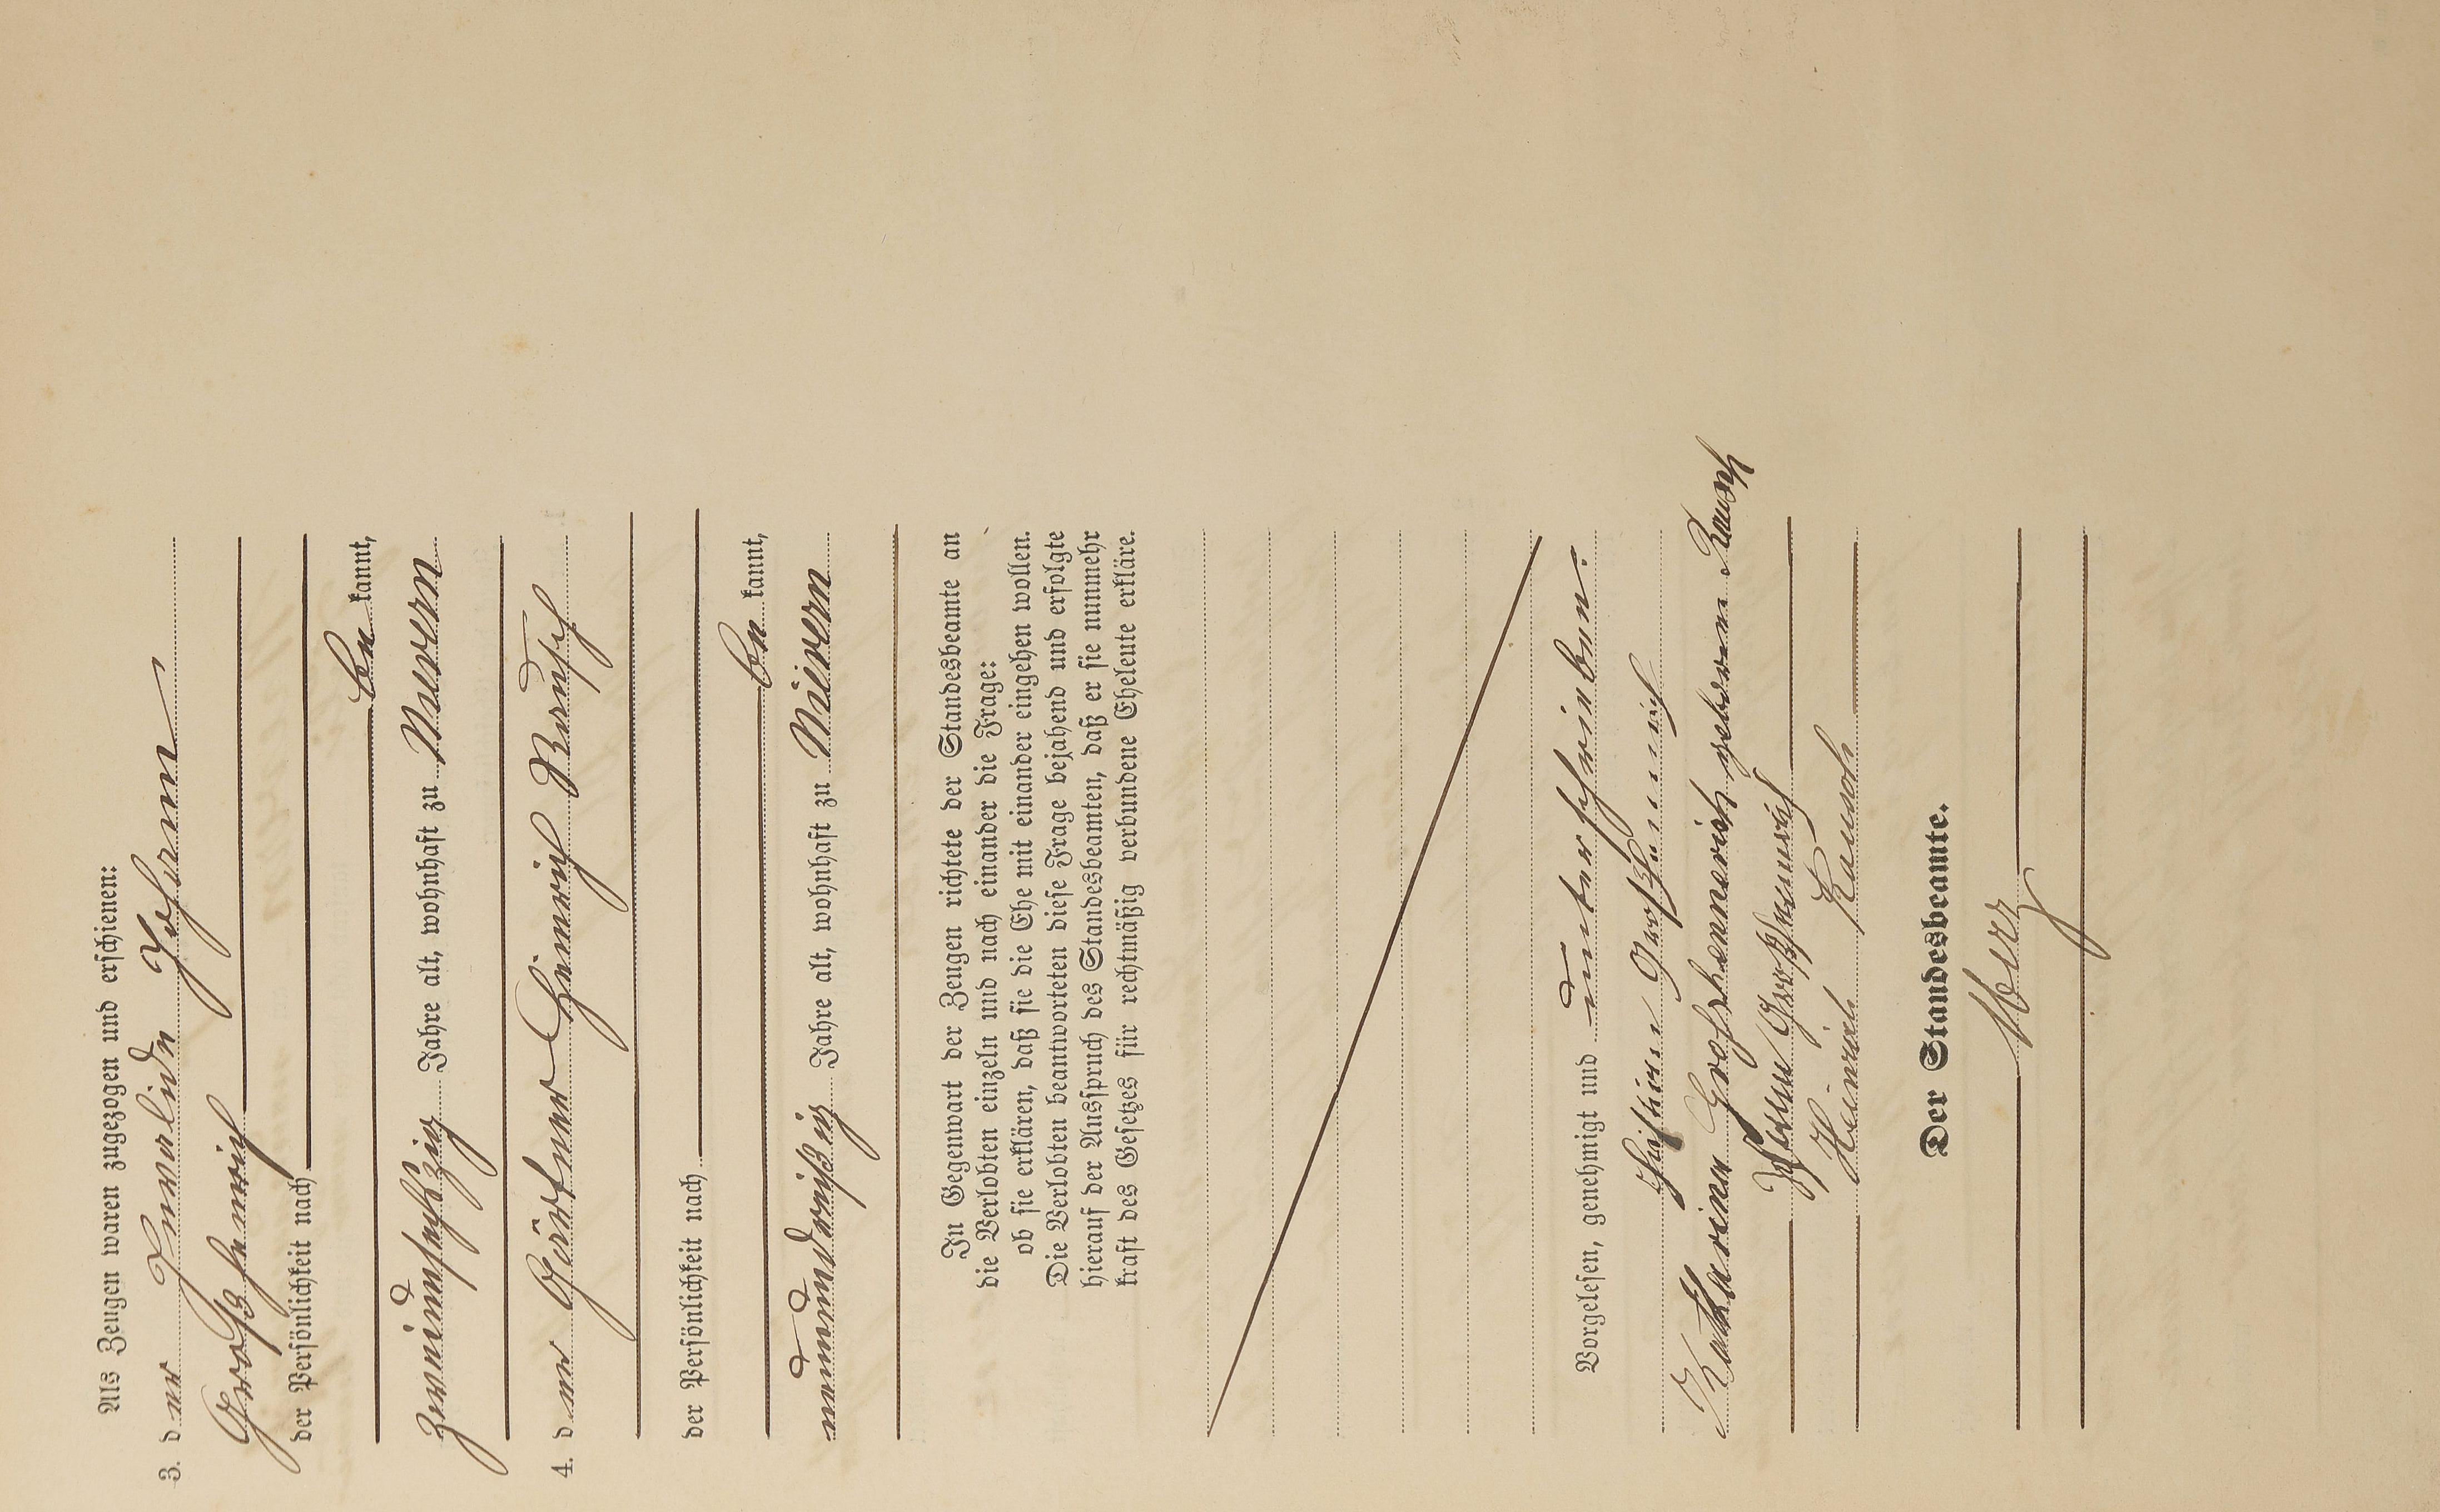 Als Zeugen waren zugezogen und erschienen:
3. der Invalide Johann
Großhenrich
der Persönlichkeit nach
be kannt,
zweiundsechszig Jahre alt, wohnhaft zu Nievern
4. der Gärtner Heinrich Rausch
der Persönlichkeit nach
be kannt,
einunddreißig Jahre alt, wohnhaft zu Nievern
In Gegenwart der Zeugen richtete der Standesbeamte an
die Verlobten einzeln und nach einander die Frage:
ob sie erklären, daß sie die Ehe mit einander eingehen wollen.
Die Verlobten beantworteten diese Frage bejahend und erfolgte
hierauf der Ausspruch des Standesbeamten, daß er sie nunmehr
kraft des Gesetzes für rechtmäßig verbundene Eheleute erkläre.
Vorgelesen, genehmigt und unterschrieben.
Großhennrich
Katharina Großhennerich geborene Rausch
Johann Großhennrich
Heinrich Rausch
Der Standesbeamte.